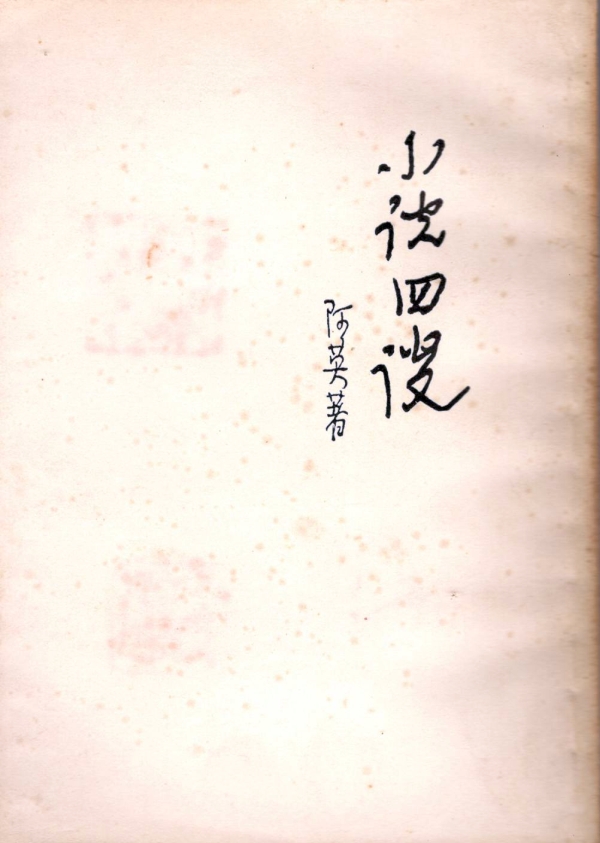 小说四谈
阿英著